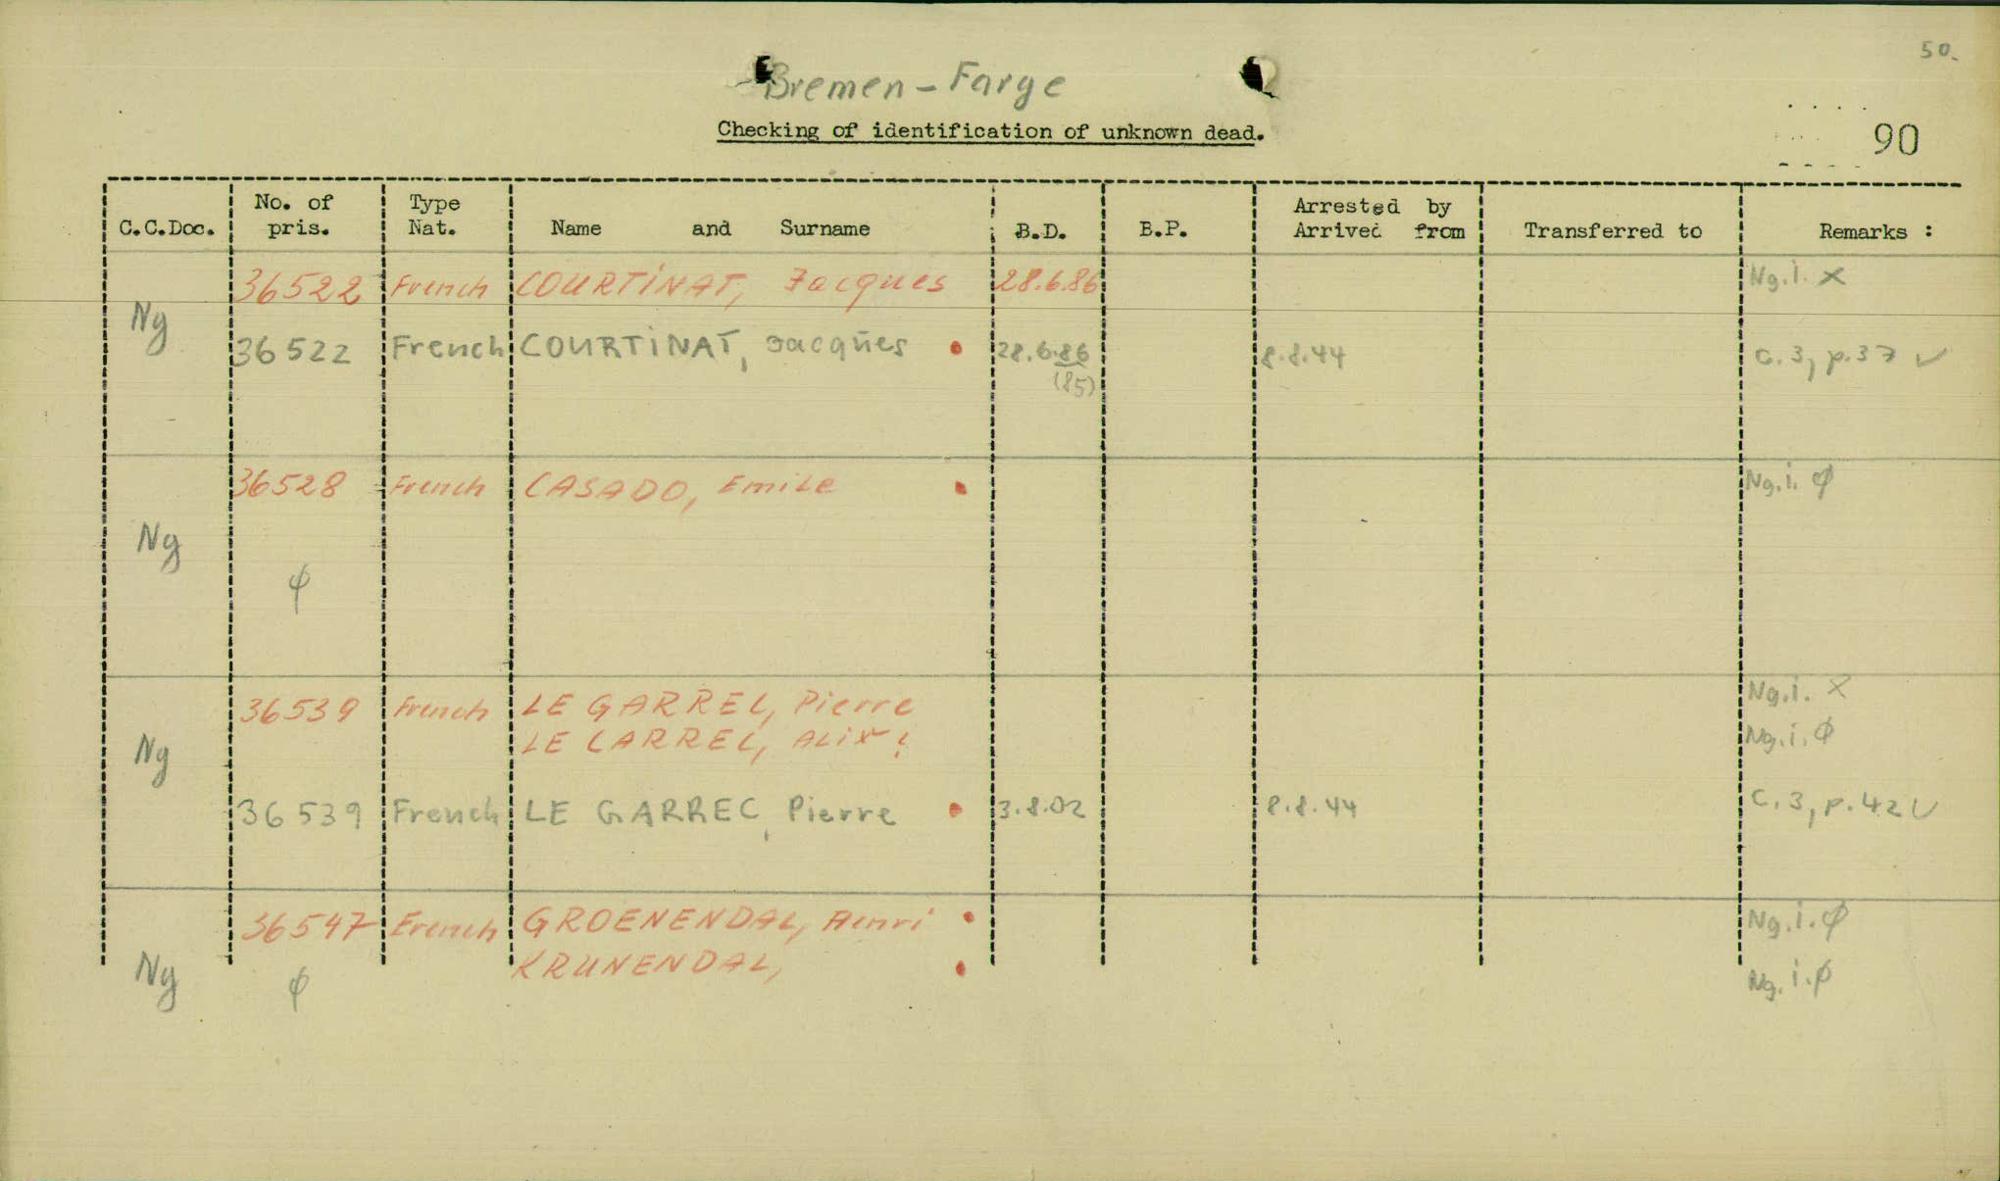 50.
Bremen - Farge
Checking of identification of unknown dead.
90
C.C.Doc. No. of pris. Type Nat. Name and Surname B.D. B.P. Arrested by Arrived from Transferred to Remarks :
36522 French COURTINAT, Jacques 28.6.86 Ng.i. x
Ng
36522 French COURTINAT, Jacques • 28.6.86 8.8.44 C.3, p.37 ✓
(85)
36528 French CASADO, Emile • Ng.i. φ
Ng
φ
36539 French LE GARREL, Pierre Ng.i. x
LE CARREL, Alix Ng.i. φ
Ng
36539 French LE GARREC, Pierre • 3.8.02 8.8.44 C.3, p.42 ✓
36547 French GROENENDAL, Henri • Ng.i. φ
Ng φ KRUNENDAL, • Ng.i. φ